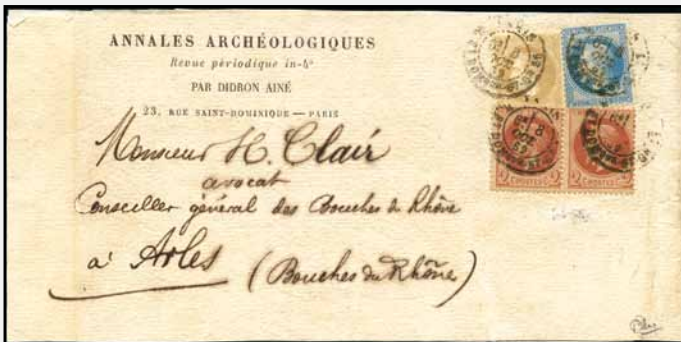 ANNALES ARCHÉOLOGIQUES
Revue périodique in-4°
PAR DIDRON AINÉ
23, RUE SAINT-DOMINIQUE — PARIS
Monsieur H. Clair
avocat
Conseiller général des Bouches du Rhône
à Arles (Bouches du Rhône)
2 POSTES 2